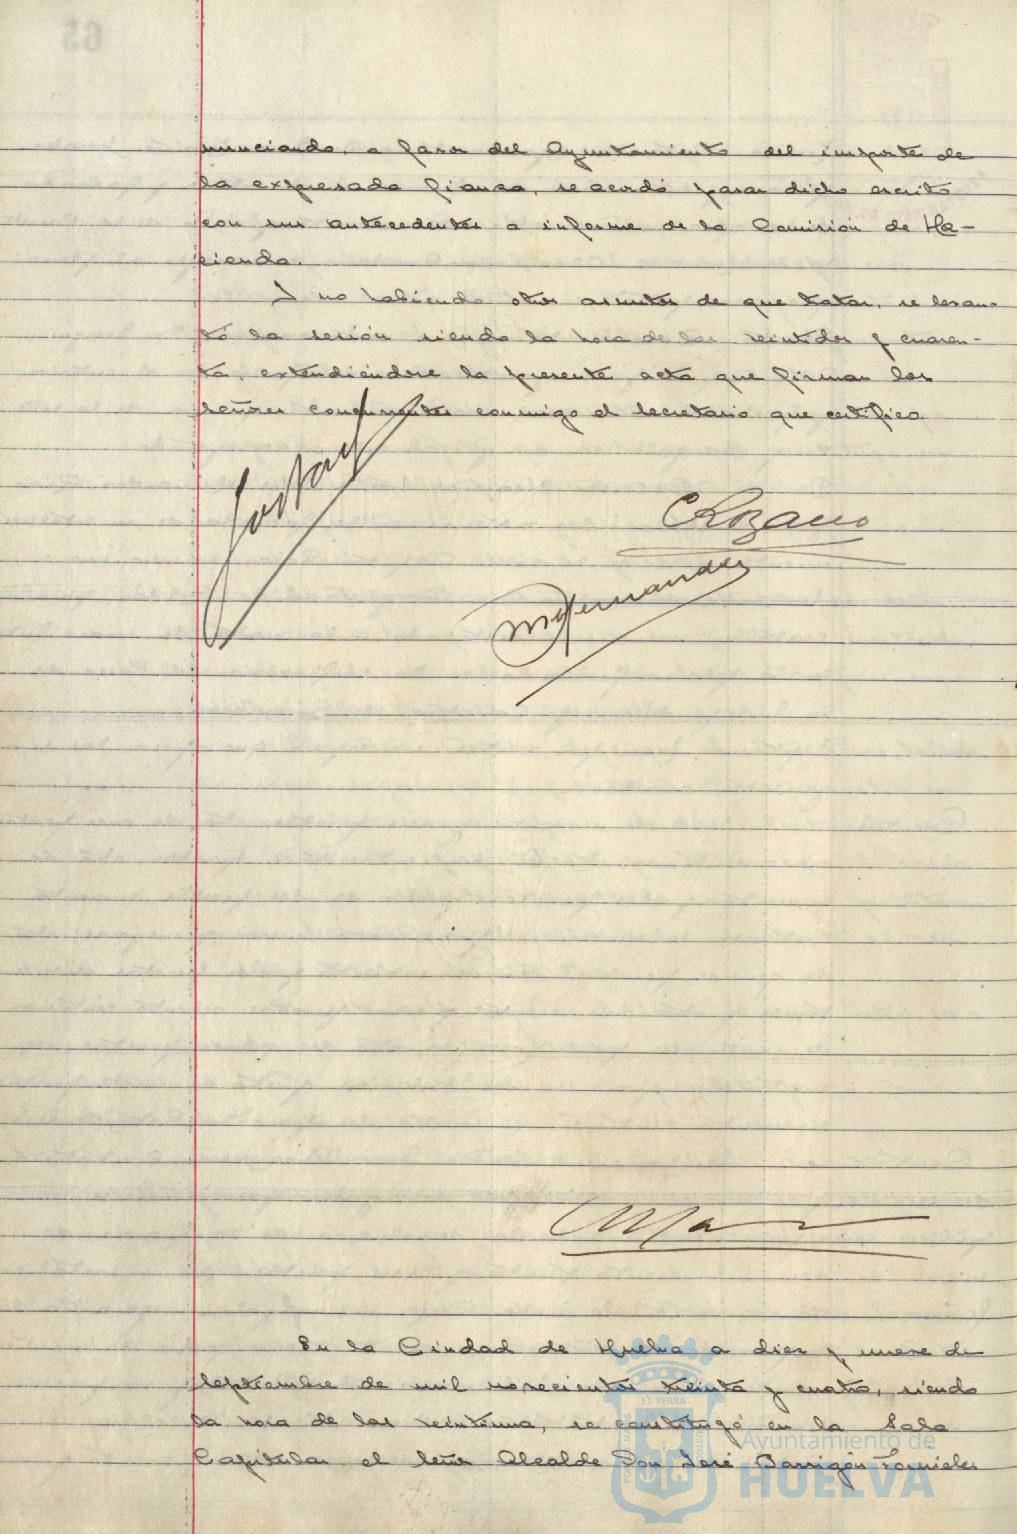 nunciando, a favor del Ayuntamiento del importe de
la expresada fianza, se acordó pasar dicho escrito
con sus antecedentes a informe de la Comisión de Ha-
cienda.
Y no habiendo otros asuntos de que tratar, se levan-
tó la sesión siendo la hora de las veintidos y cuaren-
ta, extendiéndose la presente acta que firman los
señores concurrentes conmigo el Secretario que certifico.
C Rozano
M Fernandez
En la Ciudad de Huelva a diez y nueve de
Septiembre de mil novecientos treinta y cuatro, siendo
la hora de las veintiuna, se constituyó en la Sala
Capitular el Señor Alcalde Don José Barrigón Fornieles
Ayuntamiento de
HUELVA